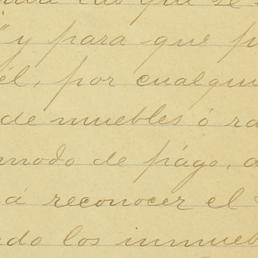 que se
" y para que p
él, por cualqui
de muebles ó ra
modo de págo, a
á reconocer el
do los inmueb